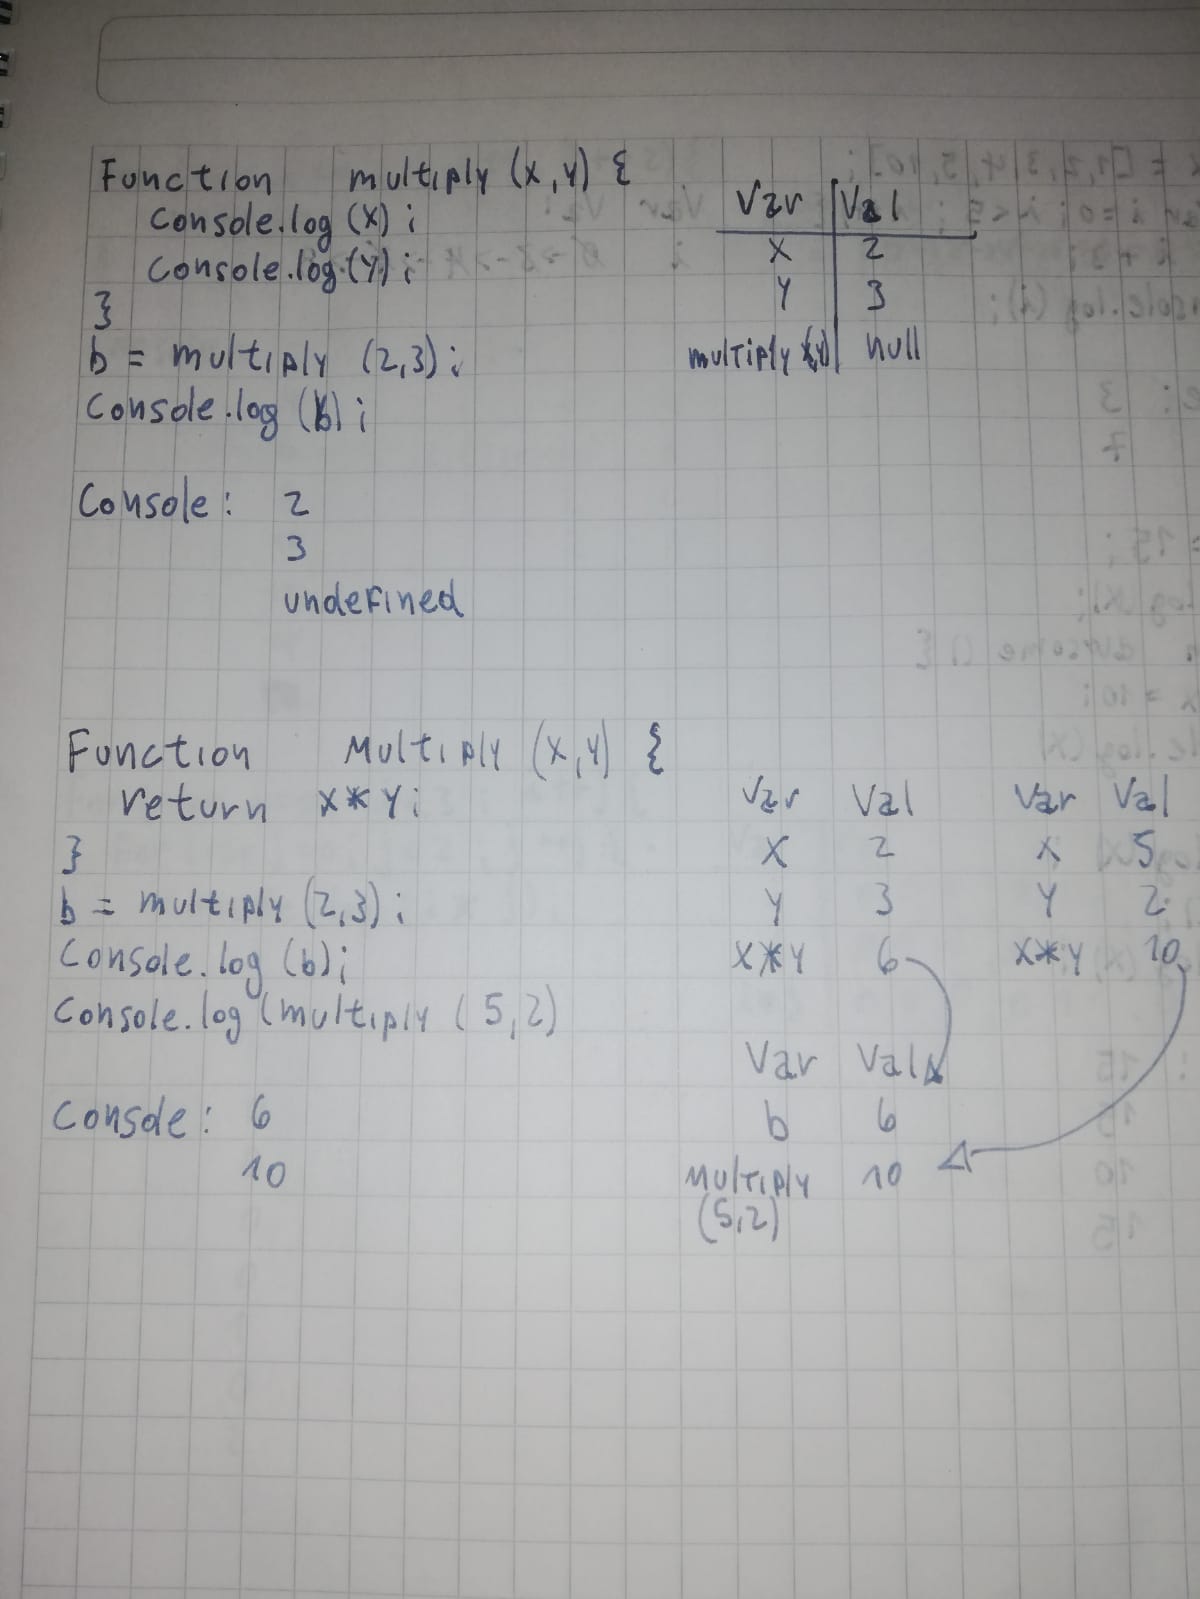 Function multiply (x,y) {
Console.log (x);
Console.log.(y);
}
b = multiply (2,3);
Console.log (b);
Var Val
x 2
y 3
multiply (x,y) null
Console: 2
3
undefined
Function Multiply (x,y) {
return x*y;
}
b = multiply (2,3);
Console.log (b);
Console.log (multiply (5,2)
Var Val
x 2
y 3
x*y 6
Var Val
x 5
y 2
x*y 10
Var Val
b 6
Multiply 10
(5,2)
Console: 6
10